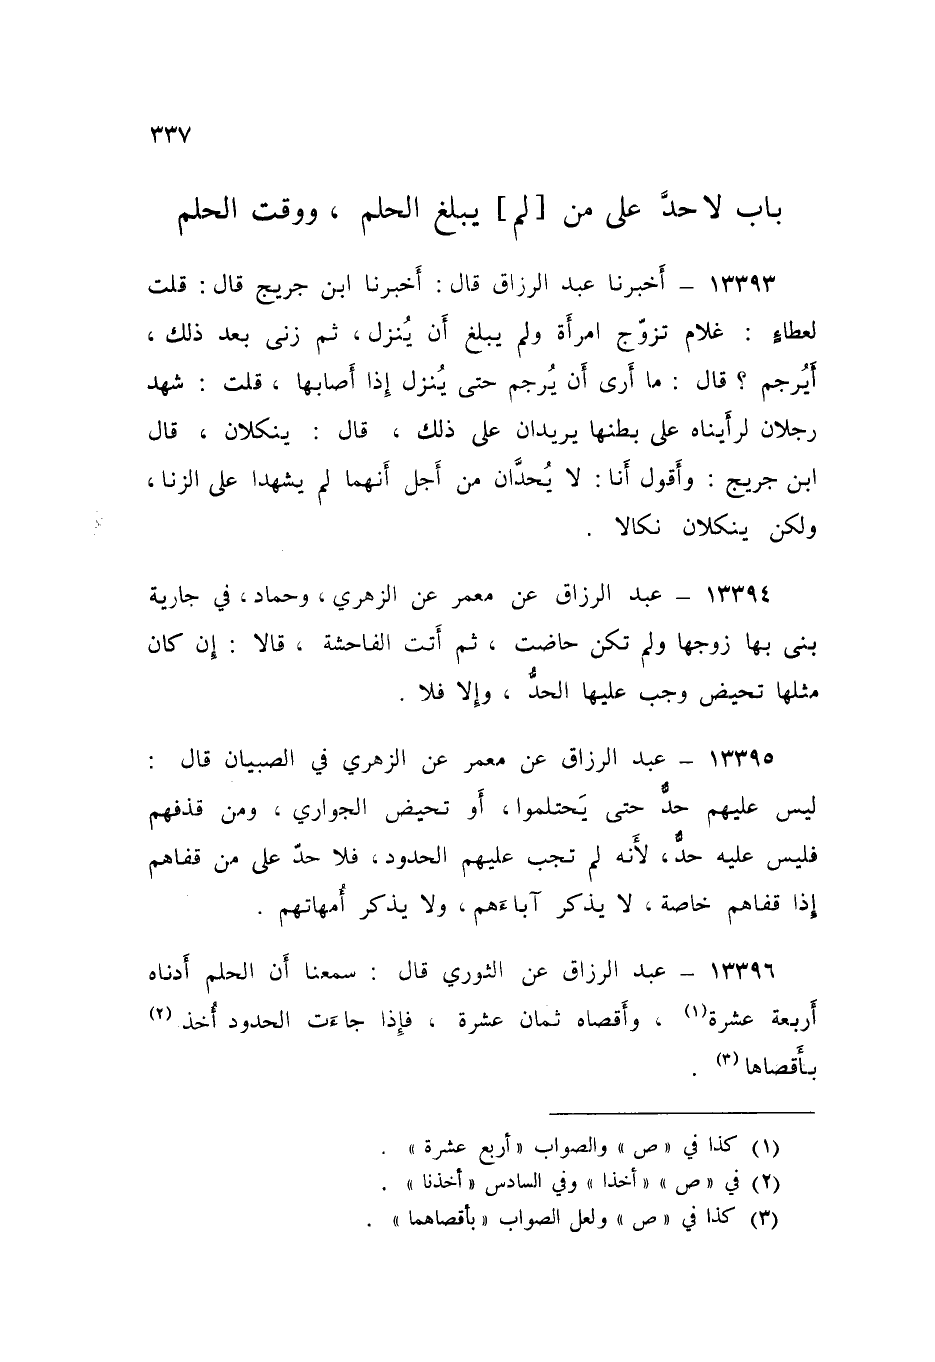 ٣٣٧
باب لا حدَّ على من [لم] يبلغ الحلم ، ووقت الحلم
١٣٣٩٣ – أخبرنا عبد الرزاق قال : أخبرنا ابن جريج قال : قلت
لعطاءٍ : غلام تزوّج امرأة ولم يبلغ أن يُنزل ، ثم زنى بعد ذلك ،
أيُرجم ؟ قال : ما أرى أن يُرجم حتى يُنزل إذا أصابها ، قلت : شهد
رجلان لرأيناه على بطنها يريدان على ذلك ، قال : ينكلان ، قال
ابن جريج : وأقول أنا : لا يُحدَّان من أجل أنهما لم يشهدا على الزنا ،
ولكن ينكلان نكالا .
١٣٣٩٤ – عبد الرزاق عن معمر عن الزهري ، وحماد ، في جارية
بنى بها زوجها ولم تكن حاضت ، ثم أتت الفاحشة ، قالا : إن كان
مثلها تحيض وجب عليها الحدُّ ، وإلا فلا .
١٣٣٩٥ – عبد الرزاق عن معمر عن الزهري في الصبيان قال :
ليس عليهم حدٌّ حتى يَحتلموا ، أو تحيض الجواري ، ومن قذفهم
فليس عليه حدٌّ ، لأنه لم تجب عليهم الحدود ، فلا حدّ على من قفاهم
إذا قفاهم خاصة ، لا يذكر آباءهم ، ولا يذكر أُمهاتهم .
١٣٣٩٦ – عبد الرزاق عن الثوري قال : سمعنا أن الحلم أدناه
أربعة عشرة (١) ، وأقصاه ثمان عشرة ، فإذا جاءت الحدود أُخذ (٢)
بأقصاها (٣) .
(١) كذا في « ص » والصواب « أربع عشرة » .
(٢) في « ص » « أخذا » وفي السادس « أخذنا » .
(٣) كذا في « ص » ولعل الصواب « بأقصاهما » .